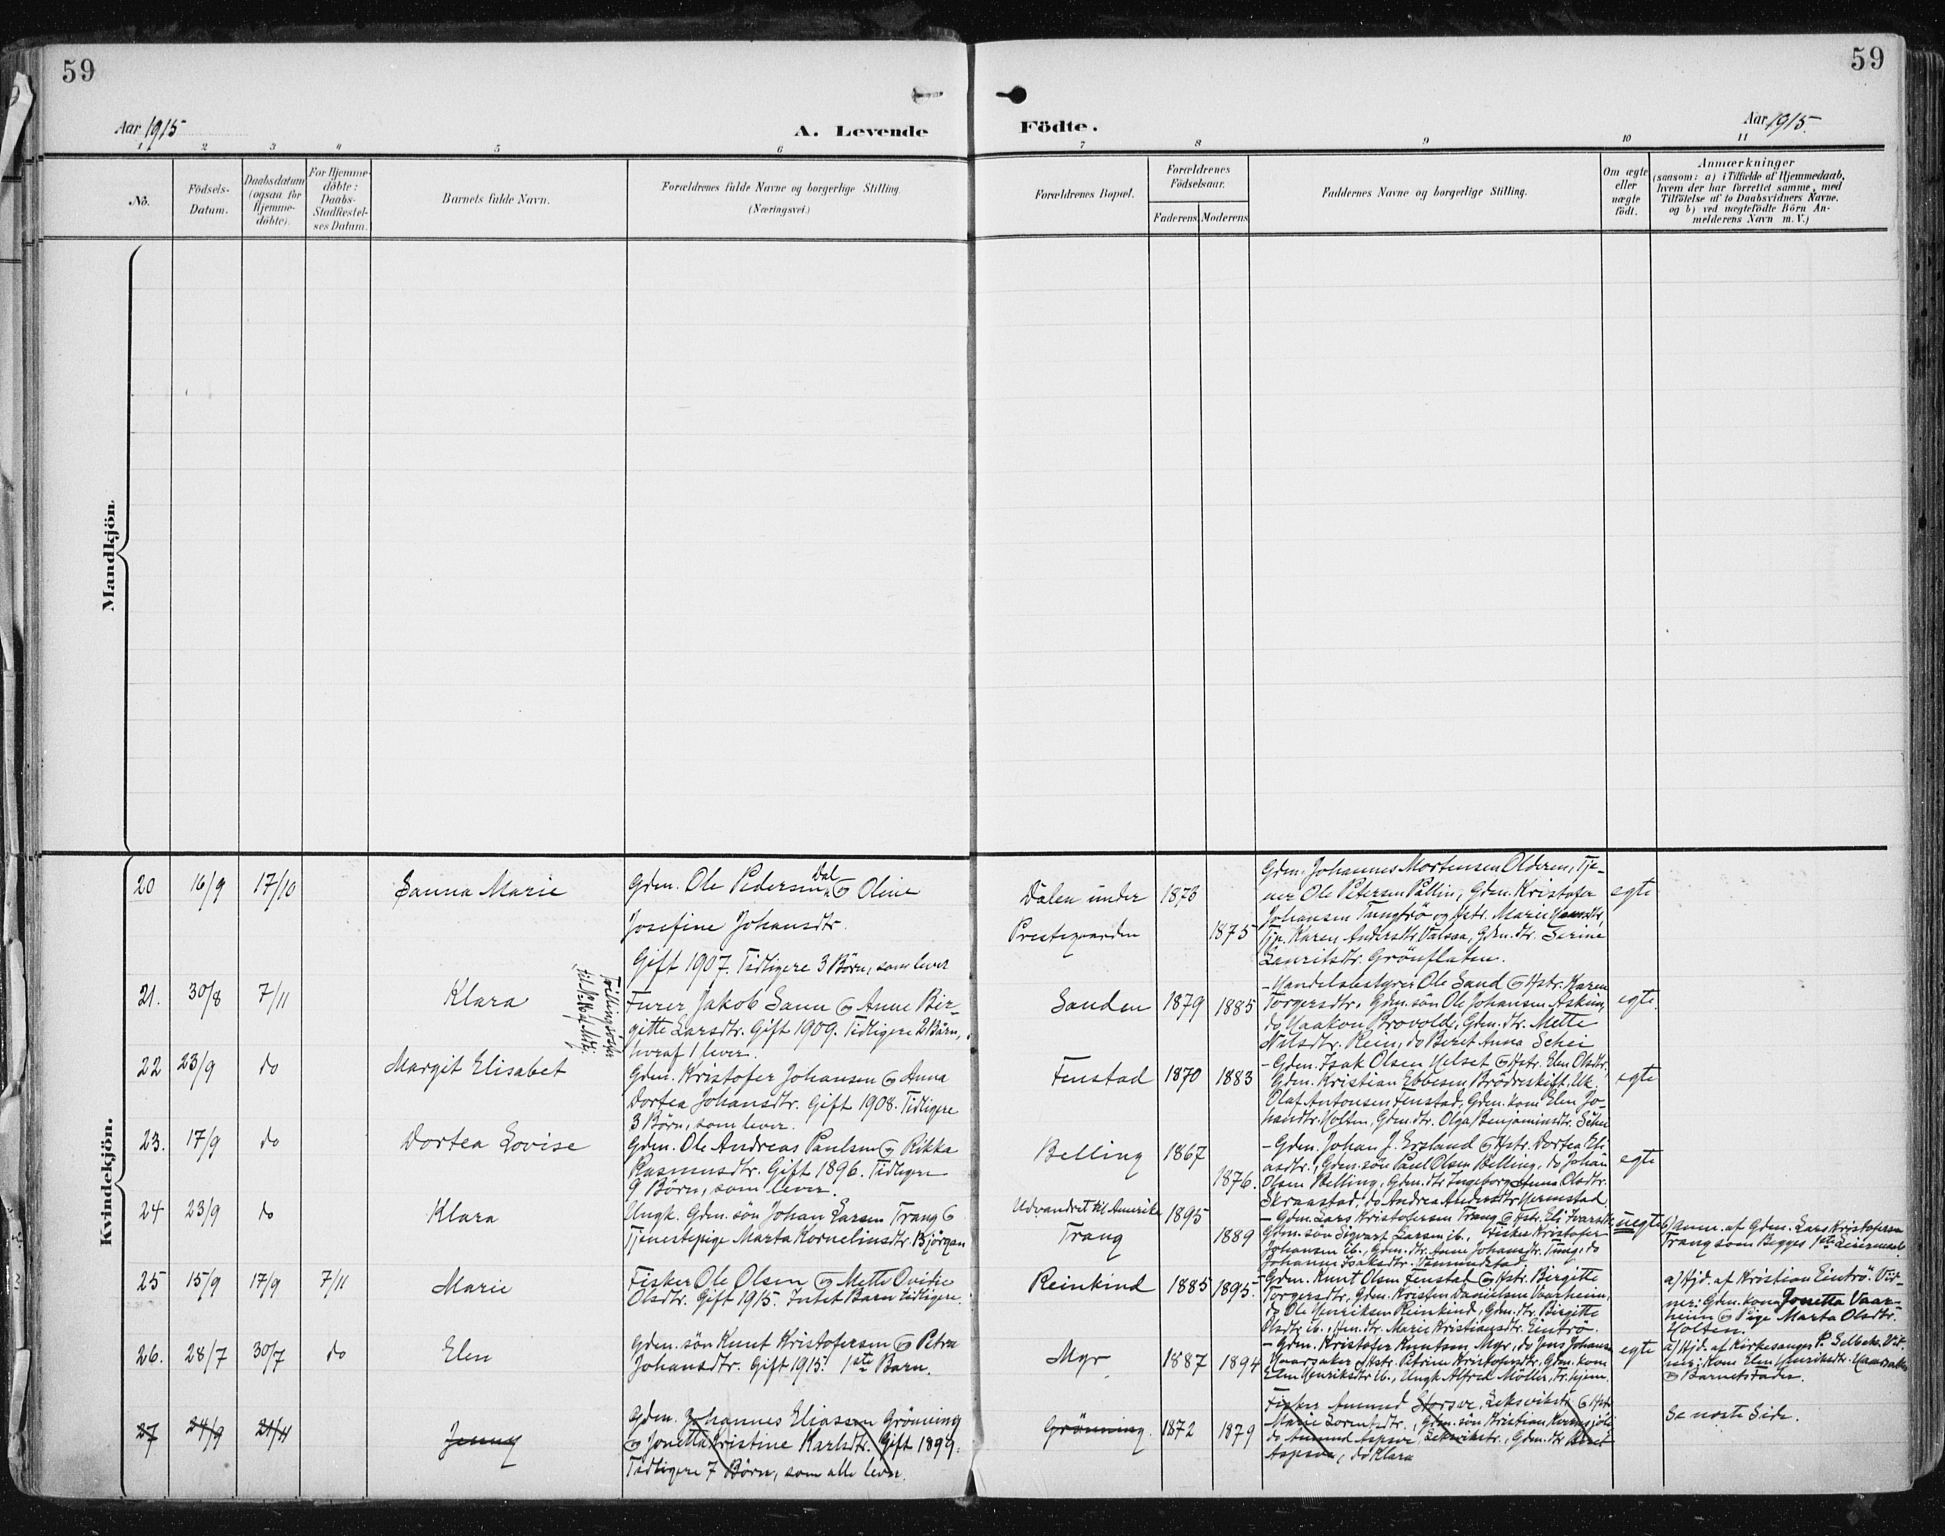 59
59
Aar 1915
A. Levende
Födte.
Aar 1915.
1 2 3 4 5 6 7 8 9 10 11
No.
Födsels-
Datum.
Daabsdatum
(ogsaa for
Hjemme-
döbte).
For Hjemme-
döbte:
Daabs-
Stadfæstel-
ses Datum.
Barnets fulde Navn.
Forældrenes fulde Navne og borgerlige Stilling
(Næringsvei.)
Forældrenes Bopæl.
Forældrenes
Födselsaar.
Faderens
Moderens
Faddernes Navne og borgerlige Stilling.
Om ægte
eller
uægte
födt.
Anmærkninger
(saasom: a) i Tilfælde af Hjemmedaab,
hvem der har forrettet samme, med
Tilföielse af to Daabsvidners Navne.
og b) ved uægtefödte Börn An-
melderens Navn m. V.)
Mandkjön.
Kvindekjön.
20 16/9 17/10
Sanna Marie
Gdm. Ole Pedersen Dal og Oline
Josefine Johansdtr.
Gift 1907. Tidligere 3 Börn, som lever
Dalen under
Prestegaarden
1873
1875
Gdm. Johannes Mortensen Olderen, Tje-
ner Ole Petersen Pallin, Gdm. Kristofer
Johansen Tungtrö og Hstr. Marie
Tjp. Karen Andersdtr. Valsaa, Gdm. dtr. Serine
Lauritsdtr. Grönflaten.
egte
21. 30/8 7/11
Klara
Tvillingsöster
til No. 16 af Mkj.
Furer Jakob Sann og Anne Bir-
gitte Larsdtr. Gift 1909. Tidligere 2 Börn,
hvoraf 1 lever.
Sanden
1879
1885
- Handelsbestyrer Ole Sand og Hstr. Karen
Torgersdtr., Gdm. sön Ole Johansen Askim,
do Haakon Brovold, Gdm. dtr. Mette
Nilsdtr. Rein, do Beret Anna Schei
egte.
22 23/9 do
Margit Elisabet
Gdm. Kristofer Johansen og Anna
Dortea Johansdtr. Gift 1908. Tidligere
3 Börn, som lever.
Fenstad
1870
1883
- Gdm. Isak Olsen Helset og Hstr. Elen Olsdtr.
Gdm. Kristian Ebbesen Brödreskift, Uk.
Olaf Antonsen Fenstad, Gdm. kone Elen Jo-
hansdtr. Holten, Gdm. dtr. Olga Benjaminsdtr. Schei
egte
23. 17/9 do
Dortea Lovise
Gdm. Ole Andreas Paulsen og Rikka
Rasmusdtr. Gift 1896. Tidligere
9 Börn, som lever.
Belling
1867
1876.
- Gdm. Johan J. Ersland og Hstr. Dortea Eli-
asdtr., Gdm. sön Paul Olsen Belling, do Johan
Olsen Belling, Gdm. dtr. Ingeborg Anna Olsdtr.
Skraastad, do Andrea Andersdtr. Hermstad.
egte
24 23/9 do
Klara
Ungk. Gdm. sön Johan Larsen Trang og
Tjenestepige Marta Kornelinsdtr. Björgan
Udvandret til Amerika
Trang
1895
1889
- Gdm. Lars Kristofersen Trang og Hstr. Eli Ivarsdtr.
Gdm. sön Sigvart Larsen ib., Fisker Kristofer
Johansen ib., Gdm. dtr. Anne Johansdtr. Tung, do
Johanna Isaksdtr.
uegte
b) Anm. af Gdm. Lars Kristofersen
Trang som Begges 1ste Leiermaal
25 15/9 17/9 7/11
Marie
Fisker Ole Olsen og Mette Ovidie
Olsdtr. Gift 1915. Intet Barn tidligere.
Reinkind
1885
1895.
- Gdm. Knut Olsen Fenstad og Hstr. Birgitte
Torgersdtr., Gdm. Kristen Danielsen Vaarheim,
do Ole Henriksen Reinkind, Gdm. dtr. Birgitte
Olsdtr. ib., Gdm. dtr. Marie Kristiansdtr. Eintrö.
a) Hjd. af Kristian Eintrö. Vid-
ner: Gdm. kone Jonetta Vaar-
heim og Pige Marta Olsdtr.
Holten.
26. 28/7 30/7 do
Elen
Gdm. sön Knut Kristofersen og Petra
Johansdtr. Gift 1915. 1ste Barn.
Myr
1887
1894
- Gdm. Kristofer Knutsen Myr, do Jens Johansen
Haarsaker, Hstr. Petrine Kristofersdtr., Gdm. kone
Elen Henriksdtr. ib., Ungk. Alfred Möller, Tr.hjem.
egte
a) Hjd. af Kirkesanger P. Selbek. Vit-
ner: Kone Elen Henriksdtr. Haarsaker
og Barnets Fader.
27 24/9 21/11
Jenny
Gdm. Johannes Eliassen Grönning
og Jonetta Kristine Karlsdtr. Gift 1899.
Tidligere 7 Börn, som alle lever.
Grönning.
1872
1879
Fisker Amund Storsve, Leksvikstr. og Hstr.
Marie Lorentsdtr., Gdm. sön Kristian
do Amund Aspsve, Leksvikstr., Gdm. dtr. Beret
Aspsve, do Klara
Se næste Side.